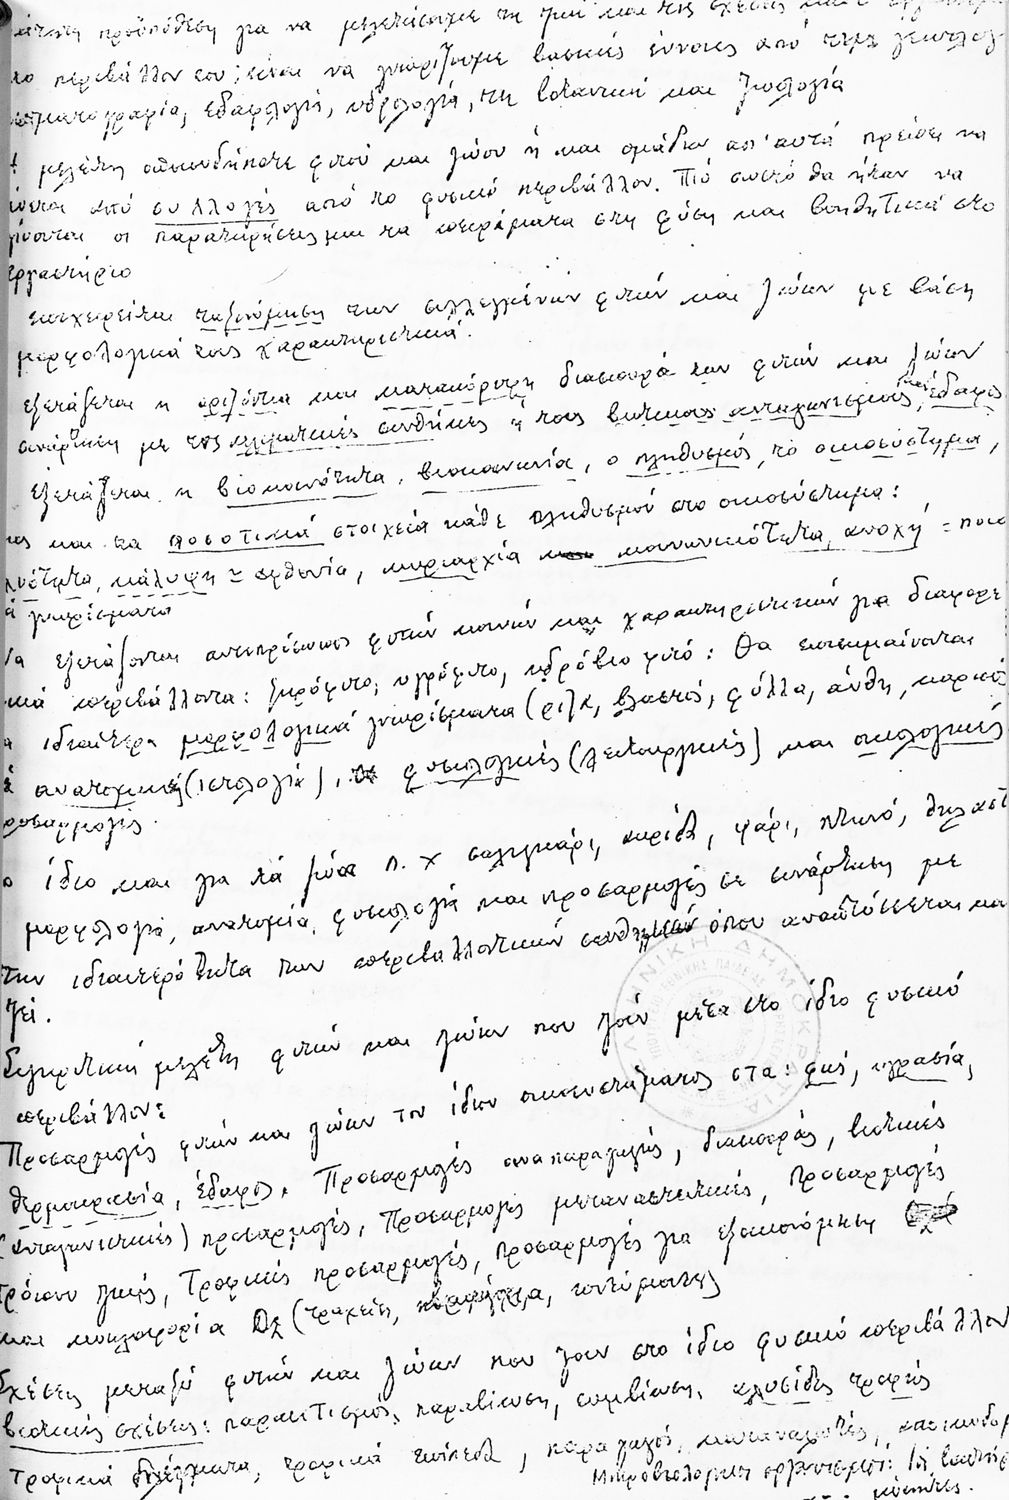 προϋπόθεση για να μελετήσουμε τη και τις σχέσεις
το περιβάλλον του, είναι να γνωρίζουμε βασικές έννοιες από την
εδαφολογία, υδρολογία, τη βοτανική και ζωολογία
μελέτη οποιουδήποτε φυτού και ζώου ή και ομάδων απ' αυτά πρέπει να
από συλλογές από το φυσικό περιβάλλον. Πιό σωστό θα ήταν να
οι παρατηρήσεις και τα πειράματα στη φύση και βοηθητικά στο
εργαστήριο
επιχειρείται ταξινόμηση των συλλεγμένων φυτών και ζώων με βάση
μορφολογικά τους χαρακτηριστικά.
εξετάζεται η οριζόντια και κατακόρυφη διασπορά των φυτών και ζώων
συνάρτηση με τις κλιματικές συνθήκες ή τους βιοτικούς ανταγωνισμούς, έδαφος
Εξετάζεται η βιοκοινότητα, βιοκοινωνία, ο πληθυσμός, το οικοσύστημα,
και τα ποσοτικά στοιχεία κάθε πληθυσμού στο οικοσύστημα:
κάλυψη = αφθονία, κυριαρχία κοινωνικότητα, ανοχή = ποια
γνωρίσματα
Να εξετάζονται αντιπρόσωποι φυτών κοινών και χαρακτηριστικών για διαφορε
τικά περιβάλλοντα: ξηρόφυτο, υγρόφυτο, υδρόβιο φυτό: Θα επισημαίνονται
ιδιαίτερα μορφολογικά γνωρίσματα (ρίζα, βλαστός, φύλλα, άνθη, καρπός
ανατομικές (ιστολογία), φυσιολογικές (λειτουργικές) και οικολογικές
προσαρμογές.
ίδιο και για τά ζώα π.χ σαλιγκάρι, ακρίδα, ψάρι, πτηνό, θηλαστ
μορφολογία, ανατομία, φυσιολογία και προσαρμογές σε συνάρτηση με
την ιδιαιτερότητα των περιβαλλοντικών συνθηκών όπου αναπτύσσεται και
ζεί.
Συγκριτική μελέτη φυτών και ζώων που ζούν μέσα στο ίδιο φυσικό
περιβάλλον:
Προσαρμογές φυτών και ζώων του ίδιου οικοσυστήματος στα: φως, υγρασία,
θερμοκρασία, έδαφος. Προσαρμογές αναπαραγωγής, διασποράς, βιοτικές
(ανταγωνιστικές) προσαρμογές, Προσαρμογές μεταναστευτικές, Προσαρμογές
τρόπου ζωής, Τροφικές προσαρμογές, Προσαρμογές για εξοικονόμηση
και κυκλοφορία O₂ (τραχείες,
Σχέσεις μεταξύ φυτών και ζώων που ζουν στο ίδιο φυσικό περιβάλλον
βιοτικές σχέσεις: παρασιτισμός, παραβίωση, συμβίωση, αλυσίδες τροφής
τροφικά πλέγματα, τροφικά επίπεδα, παραγωγοί, καταναλωτές, αποικοδομ
Μικροβιολογικοί οργανισμοί:
μύκητες.
ΕΛΛΗΝΙΚΗ ΔΗΜΟΚΡΑΤΙΑ